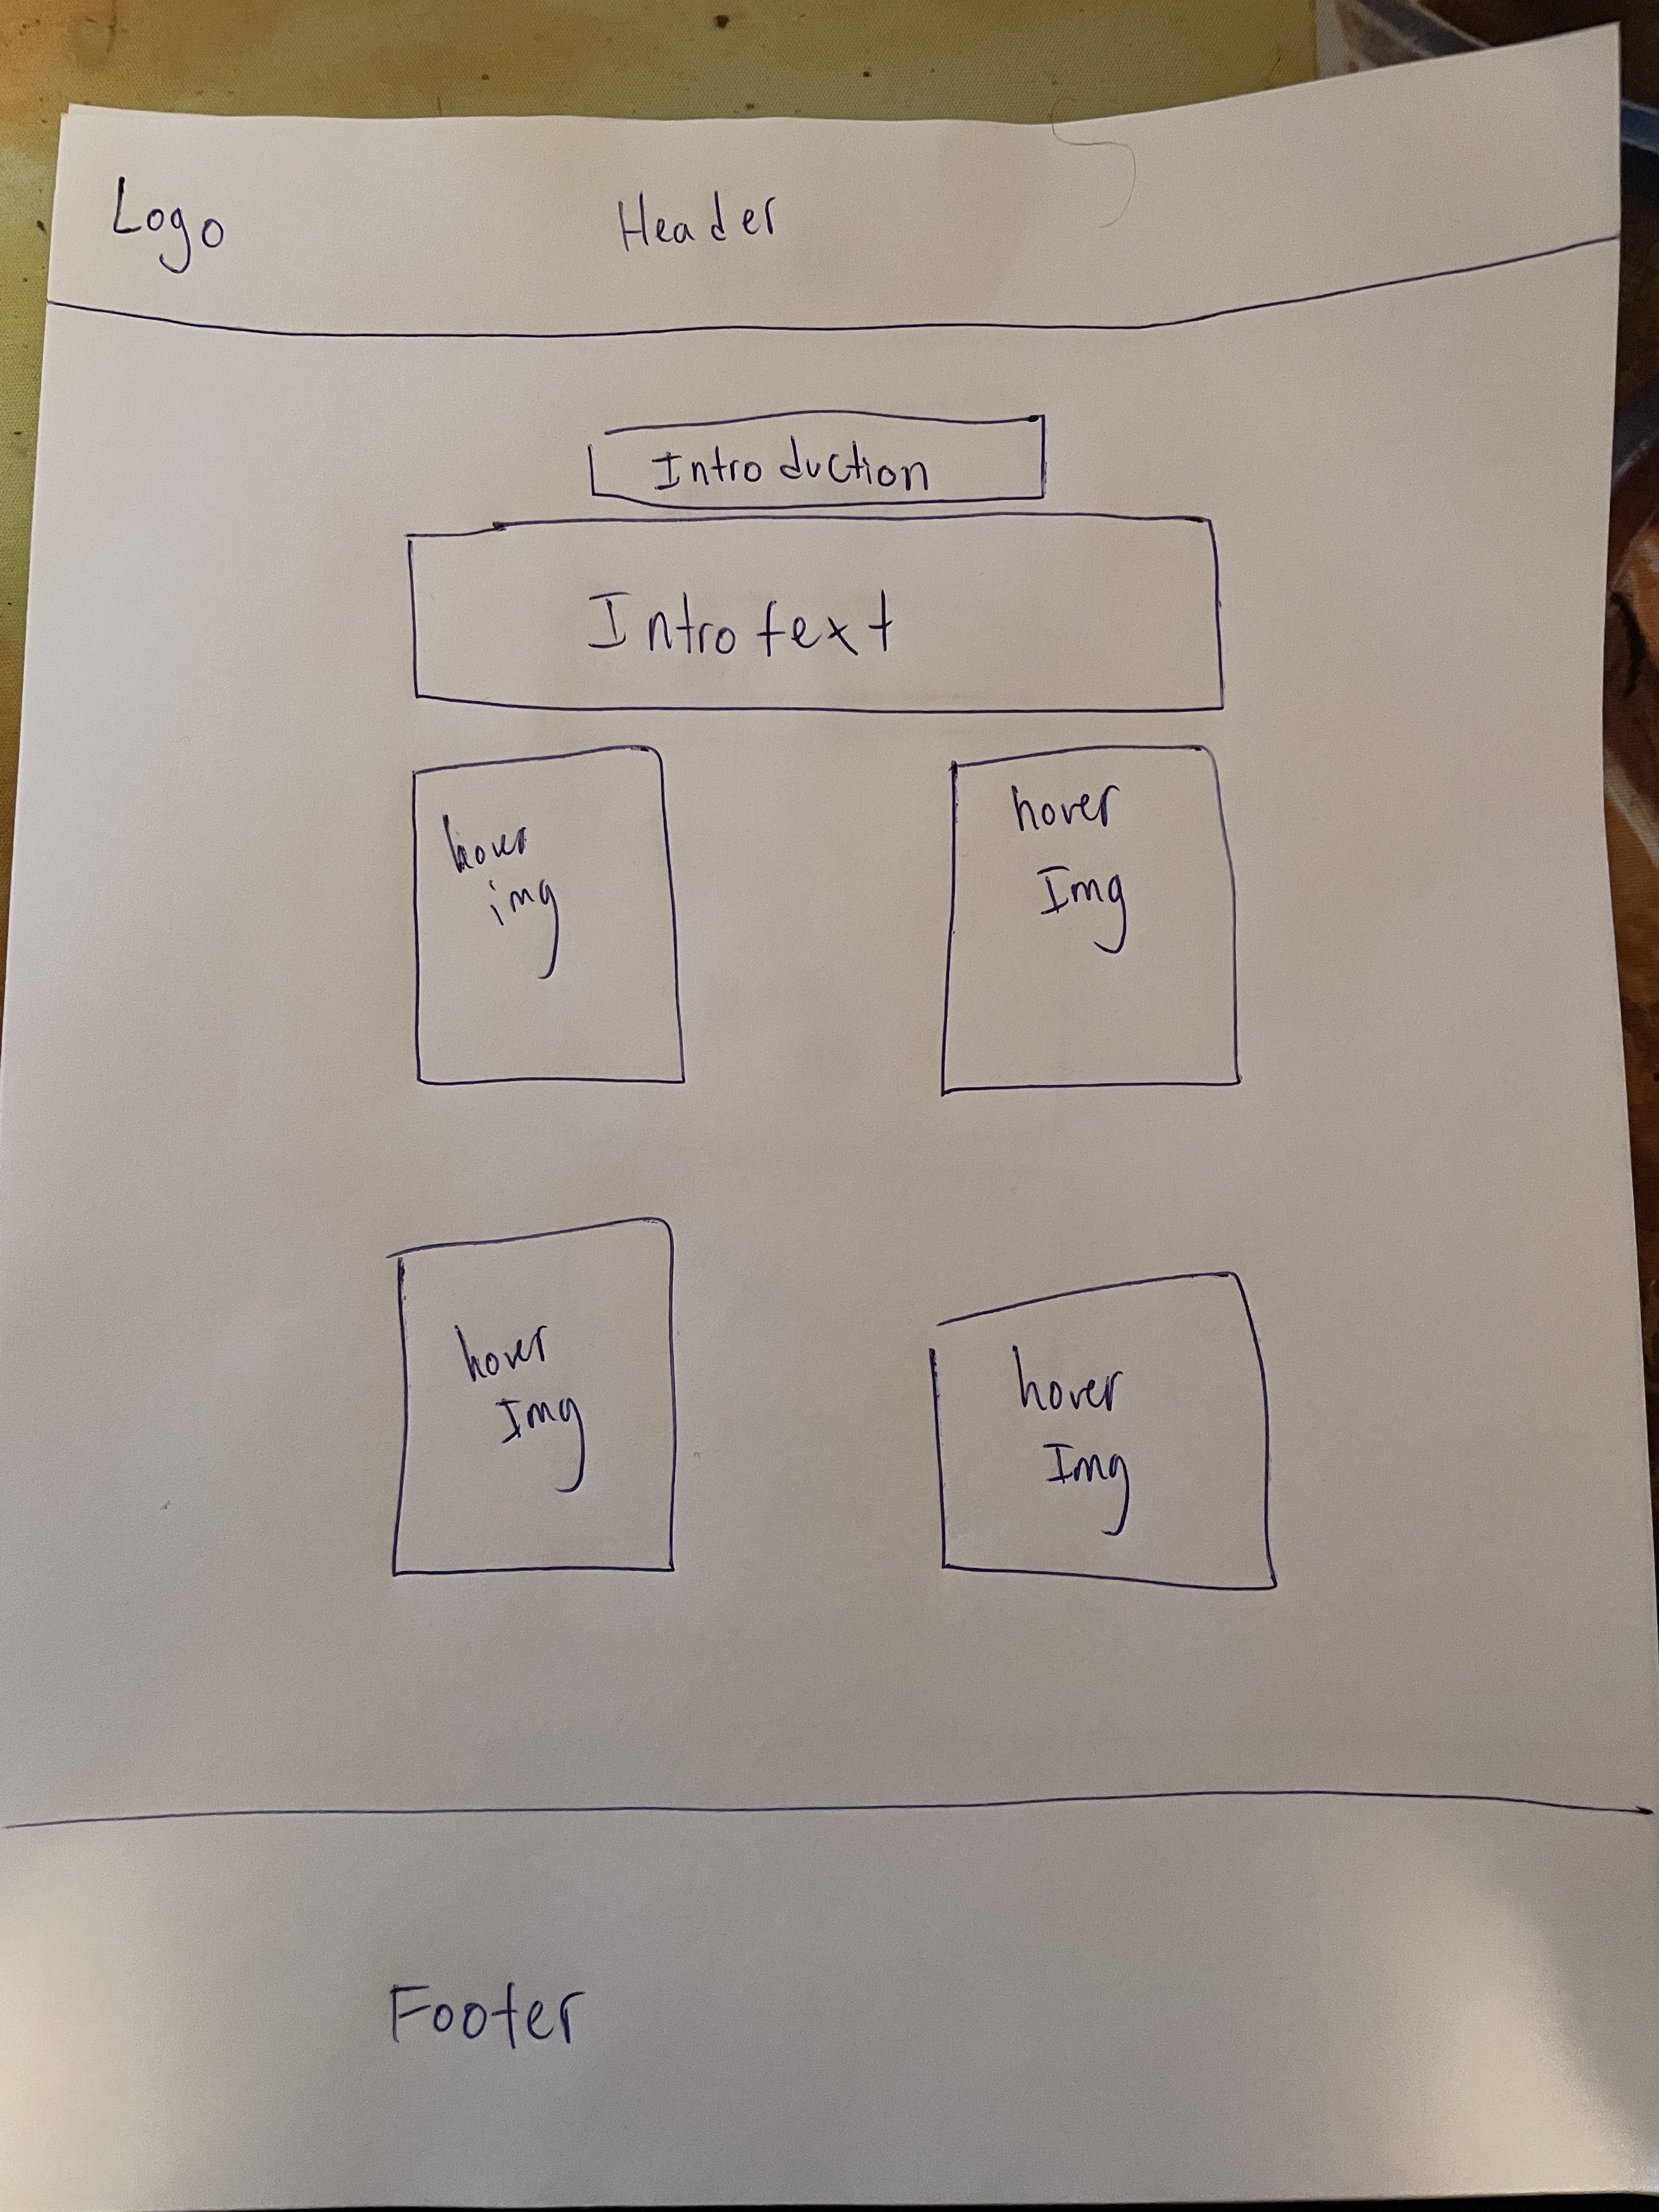 Logo Header
Introduction
Intro text
hover
img
hover
Img
hover
Img
hover
Img
Footer